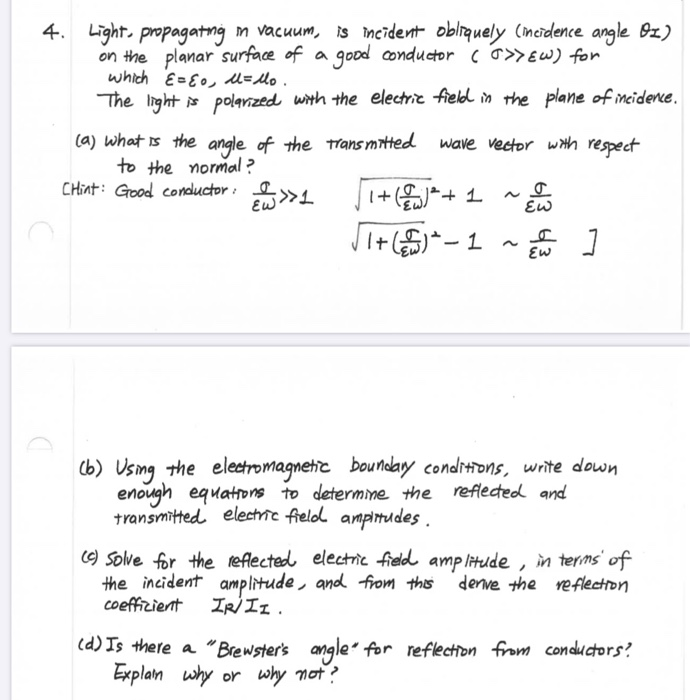 4. Light, propagating in vacuum, is incident obliquely (incidence angle θI)
on the planar surface of a good conductor (σ>>εω) for
which ε=ε₀, μ=μ₀.
The light is polarized with the electric field in the plane of incidence.
(a) What is the angle of the transmitted wave vector with respect
to the normal?
[Hint: Good conductor: σ/εω >>1 √(1+(σ/εω)²) + 1 ~ σ/εω
√(1+(σ/εω)²) - 1 ~ σ/εω ]
(b) Using the electromagnetic boundary conditions, write down
enough equations to determine the reflected and
transmitted electric field ampitudes.
(c) Solve for the reflected electric field amplitude, in terms of
the incident amplitude, and from this derive the reflection
coefficient IR/II.
(d) Is there a "Brewster's angle" for reflection from conductors?
Explain why or why not?